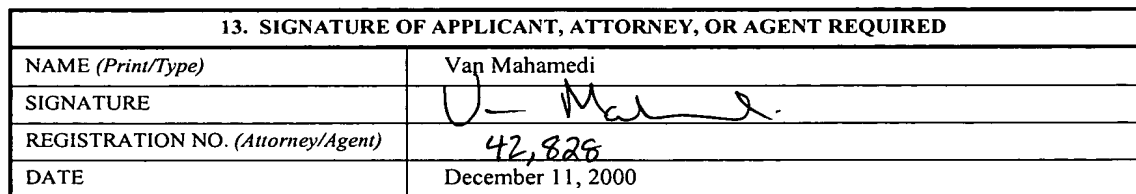 13. SIGNATURE OF APPLICANT, ATTORNEY, OR AGENT REQUIRED
NAME (Print/Type) Van Mahamedi
SIGNATURE
REGISTRATION NO. (Attorney/Agent) 42,828
DATE December 11, 2000